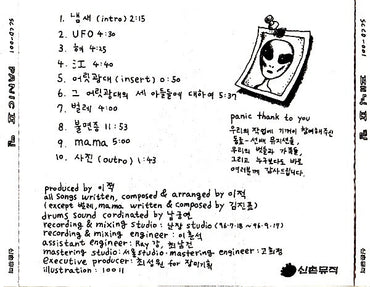 1. 냄새 (intro) 2:15
2. UFO 4:30
3. 혀 4:25
4. 강 4:40
5. 어릿광대 (insert) 0:50
6. 그 어릿광대의 세 아들들에 대하여 5:37
7. 벌레 4:00
8. 불면증 11:53
9. mama 5:00
10. 사진 (outro) 1:43
panic thank to you!
우리의 작업에 기꺼이 참여해주신
동료-선배 뮤지션들,
우리의 벗들과 가족들,
그리고 누구보다도 바로
여러분께 감사드립니다.
produced by 이적
all songs written, composed & arranged by 이적
(except 벌레, mama written & composed by 김진표)
drums sound cordinated by 남궁연
recording & mixing studio: 난장 studio (96.7.18 ~ 96.9.17)
recording & mixing engineer: 이훈석
assistant engineer: Ray 강, 최남진
mastering studio: 서울studio. mastering engineer: 고희정
executive producer: 최성원 for 장미기획
illustration: 10011
신촌뮤직
SCCD-001
PANIC
SCCD-001
신촌뮤직